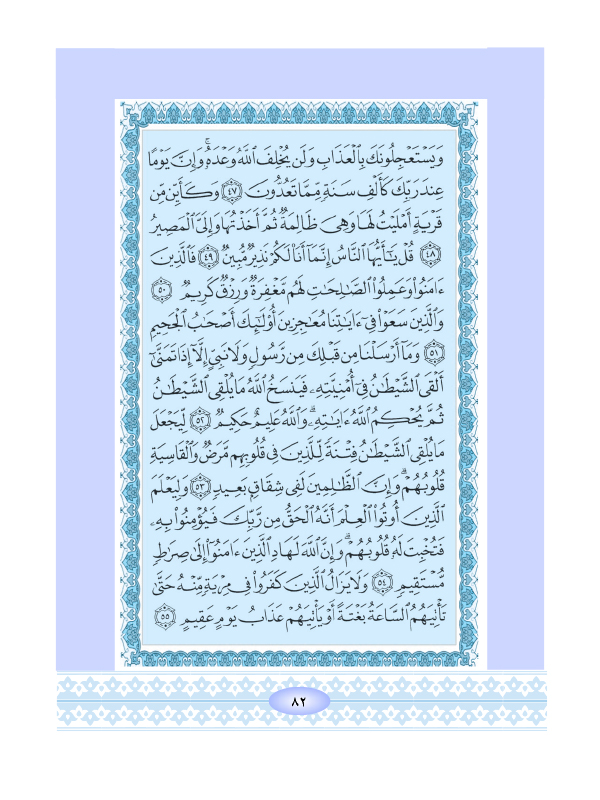 وَيَسْتَعْجِلُونَكَ بِٱلْعَذَابِ وَلَن يُخْلِفَ ٱللَّهُ وَعْدَهُۥۚ وَإِنَّ يَوْمًا
عِندَ رَبِّكَ كَأَلْفِ سَنَةٍ مِّمَّا تَعُدُّونَ ٤٧ وَكَأَيِّن مِّن
قَرْيَةٍ أَمْلَيْتُ لَهَا وَهِىَ ظَالِمَةٌ ثُمَّ أَخَذْتُهَا وَإِلَىَّ ٱلْمَصِيرُ
٤٨ قُلْ يَـٰٓأَيُّهَا ٱلنَّاسُ إِنَّمَآ أَنَا۠ لَكُمْ نَذِيرٌ مُّبِينٌ ٤٩ فَٱلَّذِينَ
ءَامَنُوا۟ وَعَمِلُوا۟ ٱلصَّـٰلِحَـٰتِ لَهُم مَّغْفِرَةٌ وَرِزْقٌ كَرِيمٌ ٥٠
وَٱلَّذِينَ سَعَوْا۟ فِىٓ ءَايَـٰتِنَا مُعَـٰجِزِينَ أُو۟لَـٰٓئِكَ أَصْحَـٰبُ ٱلْجَحِيمِ
٥١ وَمَآ أَرْسَلْنَا مِن قَبْلِكَ مِن رَّسُولٍ وَلَا نَبِىٍّ إِلَّآ إِذَا تَمَنَّىٰٓ
أَلْقَى ٱلشَّيْطَـٰنُ فِىٓ أُمْنِيَّتِهِۦ فَيَنسَخُ ٱللَّهُ مَا يُلْقِى ٱلشَّيْطَـٰنُ
ثُمَّ يُحْكِمُ ٱللَّهُ ءَايَـٰتِهِۦۗ وَٱللَّهُ عَلِيمٌ حَكِيمٌ ٥٢ لِّيَجْعَلَ
مَا يُلْقِى ٱلشَّيْطَـٰنُ فِتْنَةً لِّلَّذِينَ فِى قُلُوبِهِم مَّرَضٌ وَٱلْقَاسِيَةِ
قُلُوبُهُمْۗ وَإِنَّ ٱلظَّـٰلِمِينَ لَفِى شِقَاقٍۭ بَعِيدٍ ٥٣ وَلِيَعْلَمَ
ٱلَّذِينَ أُوتُوا۟ ٱلْعِلْمَ أَنَّهُ ٱلْحَقُّ مِن رَّبِّكَ فَيُؤْمِنُوا۟ بِهِۦ
فَتُخْبِتَ لَهُۥ قُلُوبُهُمْۗ وَإِنَّ ٱللَّهَ لَهَادِ ٱلَّذِينَ ءَامَنُوٓا۟ إِلَىٰ صِرَٰطٍ
مُّسْتَقِيمٍ ٥٤ وَلَا يَزَالُ ٱلَّذِينَ كَفَرُوا۟ فِى مِرْيَةٍ مِّنْهُ حَتَّىٰ
تَأْتِيَهُمُ ٱلسَّاعَةُ بَغْتَةً أَوْ يَأْتِيَهُمْ عَذَابُ يَوْمٍ عَقِيمٍ ٥٥
٨٢